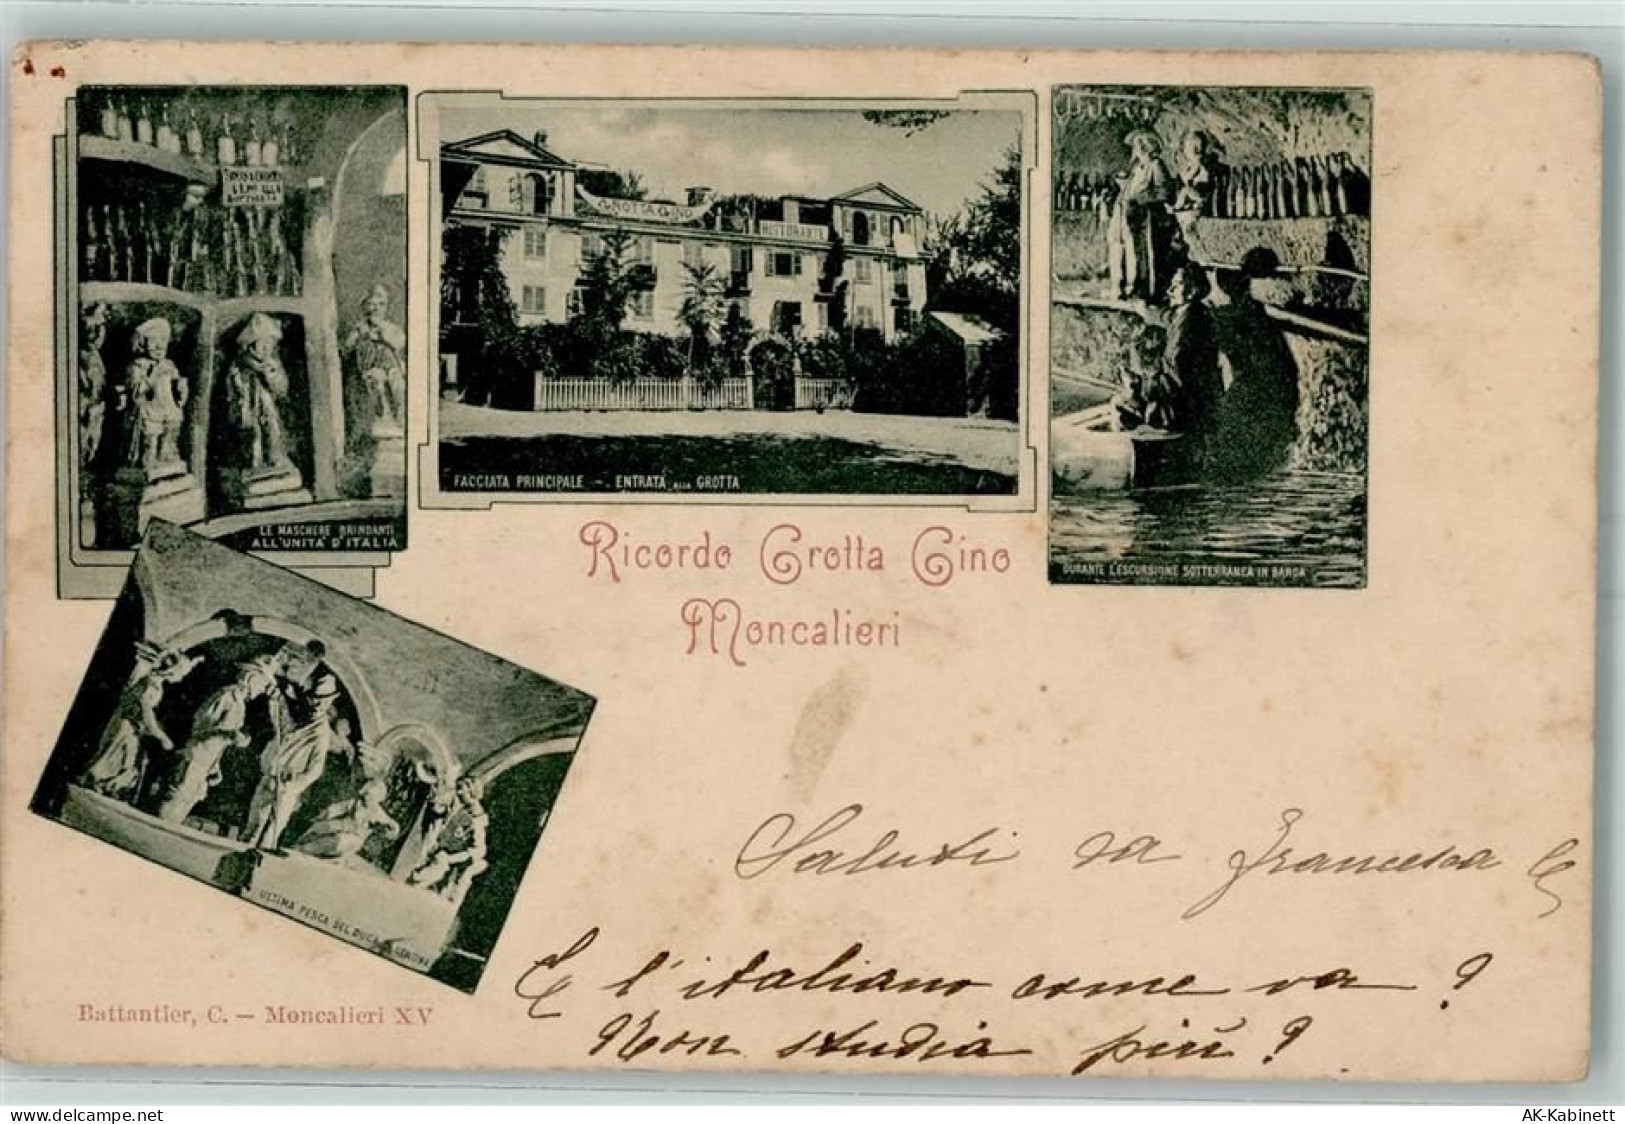 GROTTA GINO
RISTORANTE
LE MASCHERE BRINDANTI
ALL'UNITA' D'ITALIA
FACCIATA PRINCIPALE - ENTRATA ALLA GROTTA
DURANTE L'ESCURSIONE SOTTERRANEA IN BARCA
Ricordo Grotta Gino
Moncalieri
ULTIMA PESCA DEL DUCA DI GENOVA
Saluti da Francesca C
E l'italiano come va?
Non studia più?
Battantier, C. — Moncalieri XV
delcampe.net
AK-Kabinett